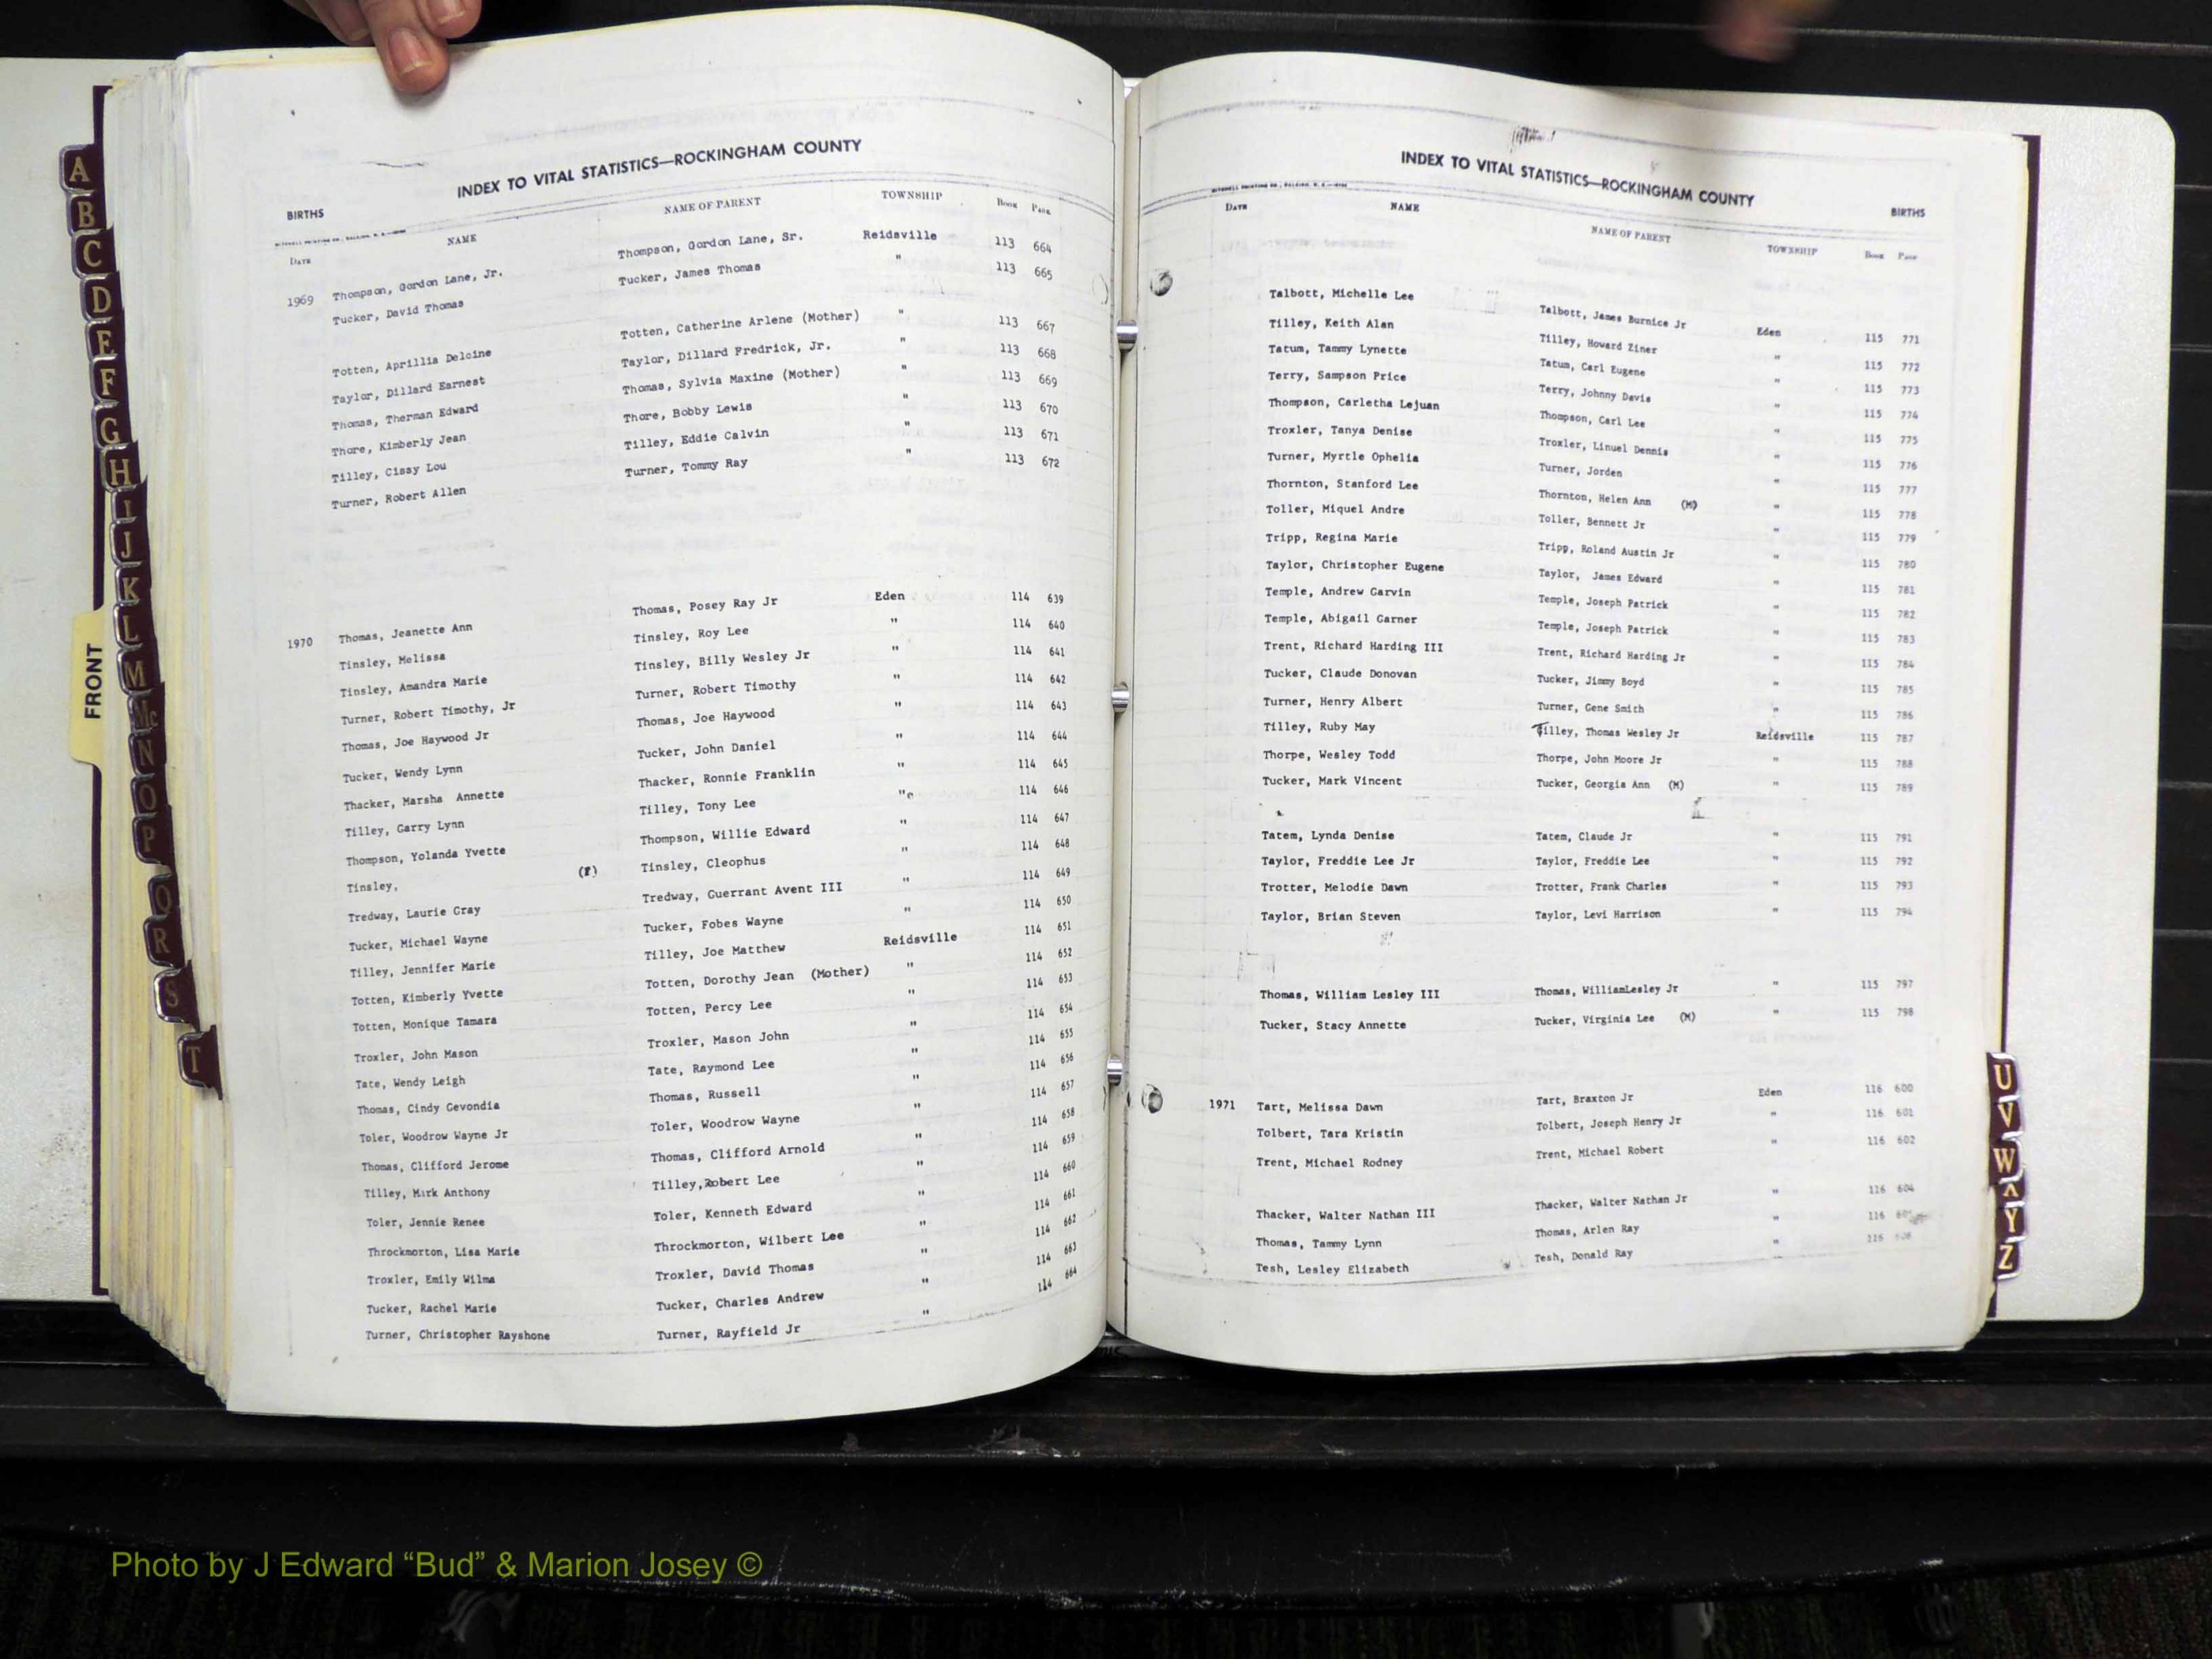 A
B
C
D
E
F
G
H
I
J
K
L
M
Mc
N
O
P
Q
R
S
T
FRONT
INDEX TO VITAL STATISTICS—ROCKINGHAM COUNTY
BIRTHS
DATE NAME NAME OF PARENT TOWNSHIP BOOK PAGE
1969 Thompson, Gordon Lane, Jr. Thompson, Gordon Lane, Sr. Reidsville 113 664
Tucker, David Thomas Tucker, James Thomas " 113 665
Totten, Aprillia Delcine Totten, Catherine Arlene (Mother) " 113 667
Taylor, Dillard Earnest Taylor, Dillard Fredrick, Jr. " 113 668
Thomas, Therman Edward Thomas, Sylvia Maxine (Mother) " 113 669
Thore, Kimberly Jean Thore, Bobby Lewis " 113 670
Tilley, Cissy Lou Tilley, Eddie Calvin " 113 671
Turner, Robert Allen Turner, Tommy Ray " 113 672
1970 Thomas, Jeanette Ann Thomas, Posey Ray Jr Eden 114 639
Tinsley, Melissa Tinsley, Roy Lee " 114 640
Tinsley, Amandra Marie Tinsley, Billy Wesley Jr " 114 641
Turner, Robert Timothy, Jr Turner, Robert Timothy " 114 642
Thomas, Joe Haywood Jr Thomas, Joe Haywood " 114 643
Tucker, Wendy Lynn Tucker, John Daniel " 114 644
Thacker, Marsha Annette Thacker, Ronnie Franklin " 114 645
Tilley, Garry Lynn Tilley, Tony Lee " 114 646
Thompson, Yolanda Yvette Thompson, Willie Edward " 114 647
Tinsley, (F) Tinsley, Cleophus " 114 648
Tredway, Laurie Gray Tredway, Guerrant Avent III " 114 649
Tucker, Michael Wayne Tucker, Fobes Wayne " 114 650
Tilley, Jennifer Marie Tilley, Joe Matthew Reidsville 114 651
Totten, Kimberly Yvette Totten, Dorothy Jean (Mother) " 114 652
Totten, Monique Tamara Totten, Percy Lee " 114 653
Troxler, John Mason Troxler, Mason John " 114 654
Tate, Wendy Leigh Tate, Raymond Lee " 114 655
Thomas, Cindy Gevondia Thomas, Russell " 114 656
Toler, Woodrow Wayne Jr Toler, Woodrow Wayne " 114 657
Thomas, Clifford Jerome Thomas, Clifford Arnold " 114 658
Tilley, Mark Anthony Tilley, Robert Lee " 114 659
Toler, Jennie Renee Toler, Kenneth Edward " 114 660
Throckmorton, Lisa Marie Throckmorton, Wilbert Lee " 114 661
Troxler, Emily Wilma Troxler, David Thomas " 114 662
Tucker, Rachel Marie Tucker, Charles Andrew " 114 663
Turner, Christopher Rayshone Turner, Rayfield Jr " 114 664
INDEX TO VITAL STATISTICS—ROCKINGHAM COUNTY
BIRTHS
DATE NAME NAME OF PARENT TOWNSHIP BOOK PAGE
Talbott, Michelle Lee Talbott, James Burnice Jr Eden 115 771
Tilley, Keith Alan Tilley, Howard Ziner " 115 772
Tatum, Tammy Lynette Tatum, Carl Eugene " 115 773
Terry, Sampson Price Terry, Johnny Davis " 115 774
Thompson, Carletha Lejuan Thompson, Carl Lee " 115 775
Troxler, Tanya Denise Troxler, Linuel Dennis " 115 776
Turner, Myrtle Ophelia Turner, Jorden " 115 777
Thornton, Stanford Lee Thornton, Helen Ann (M) " 115 778
Toller, Miquel Andre Toller, Bennett Jr " 115 779
Tripp, Regina Marie Tripp, Roland Austin Jr " 115 780
Taylor, Christopher Eugene Taylor, James Edward " 115 781
Temple, Andrew Garvin Temple, Joseph Patrick " 115 782
Temple, Abigail Garner Temple, Joseph Patrick " 115 783
Trent, Richard Harding III Trent, Richard Harding Jr " 115 784
Tucker, Claude Donovan Tucker, Jimmy Boyd " 115 785
Turner, Henry Albert Turner, Gene Smith " 115 786
Tilley, Ruby May Tilley, Thomas Wesley Jr Reidsville 115 787
Thorpe, Wesley Todd Thorpe, John Moore Jr " 115 788
Tucker, Mark Vincent Tucker, Georgia Ann (M) " 115 789
Tatem, Lynda Denise Tatem, Claude Jr " 115 791
Taylor, Freddie Lee Jr Taylor, Freddie Lee " 115 792
Trotter, Melodie Dawn Trotter, Frank Charles " 115 793
Taylor, Brian Steven Taylor, Levi Harrison " 115 794
Thomas, William Lesley III Thomas, WilliamLesley Jr " 115 797
Tucker, Stacy Annette Tucker, Virginia Lee (M) " 115 798
1971 Tart, Melissa Dawn Tart, Braxton Jr Eden 116 600
Tolbert, Tara Kristin Tolbert, Joseph Henry Jr " 116 601
Trent, Michael Rodney Trent, Michael Robert " 116 602
Thacker, Walter Nathan III Thacker, Walter Nathan Jr " 116 604
Thomas, Tammy Lynn Thomas, Arlen Ray " 116
Tesh, Lesley Elizabeth Tesh, Donald Ray " 116
U
V
W
Y
Z
Photo by J Edward “Bud” & Marion Josey ©